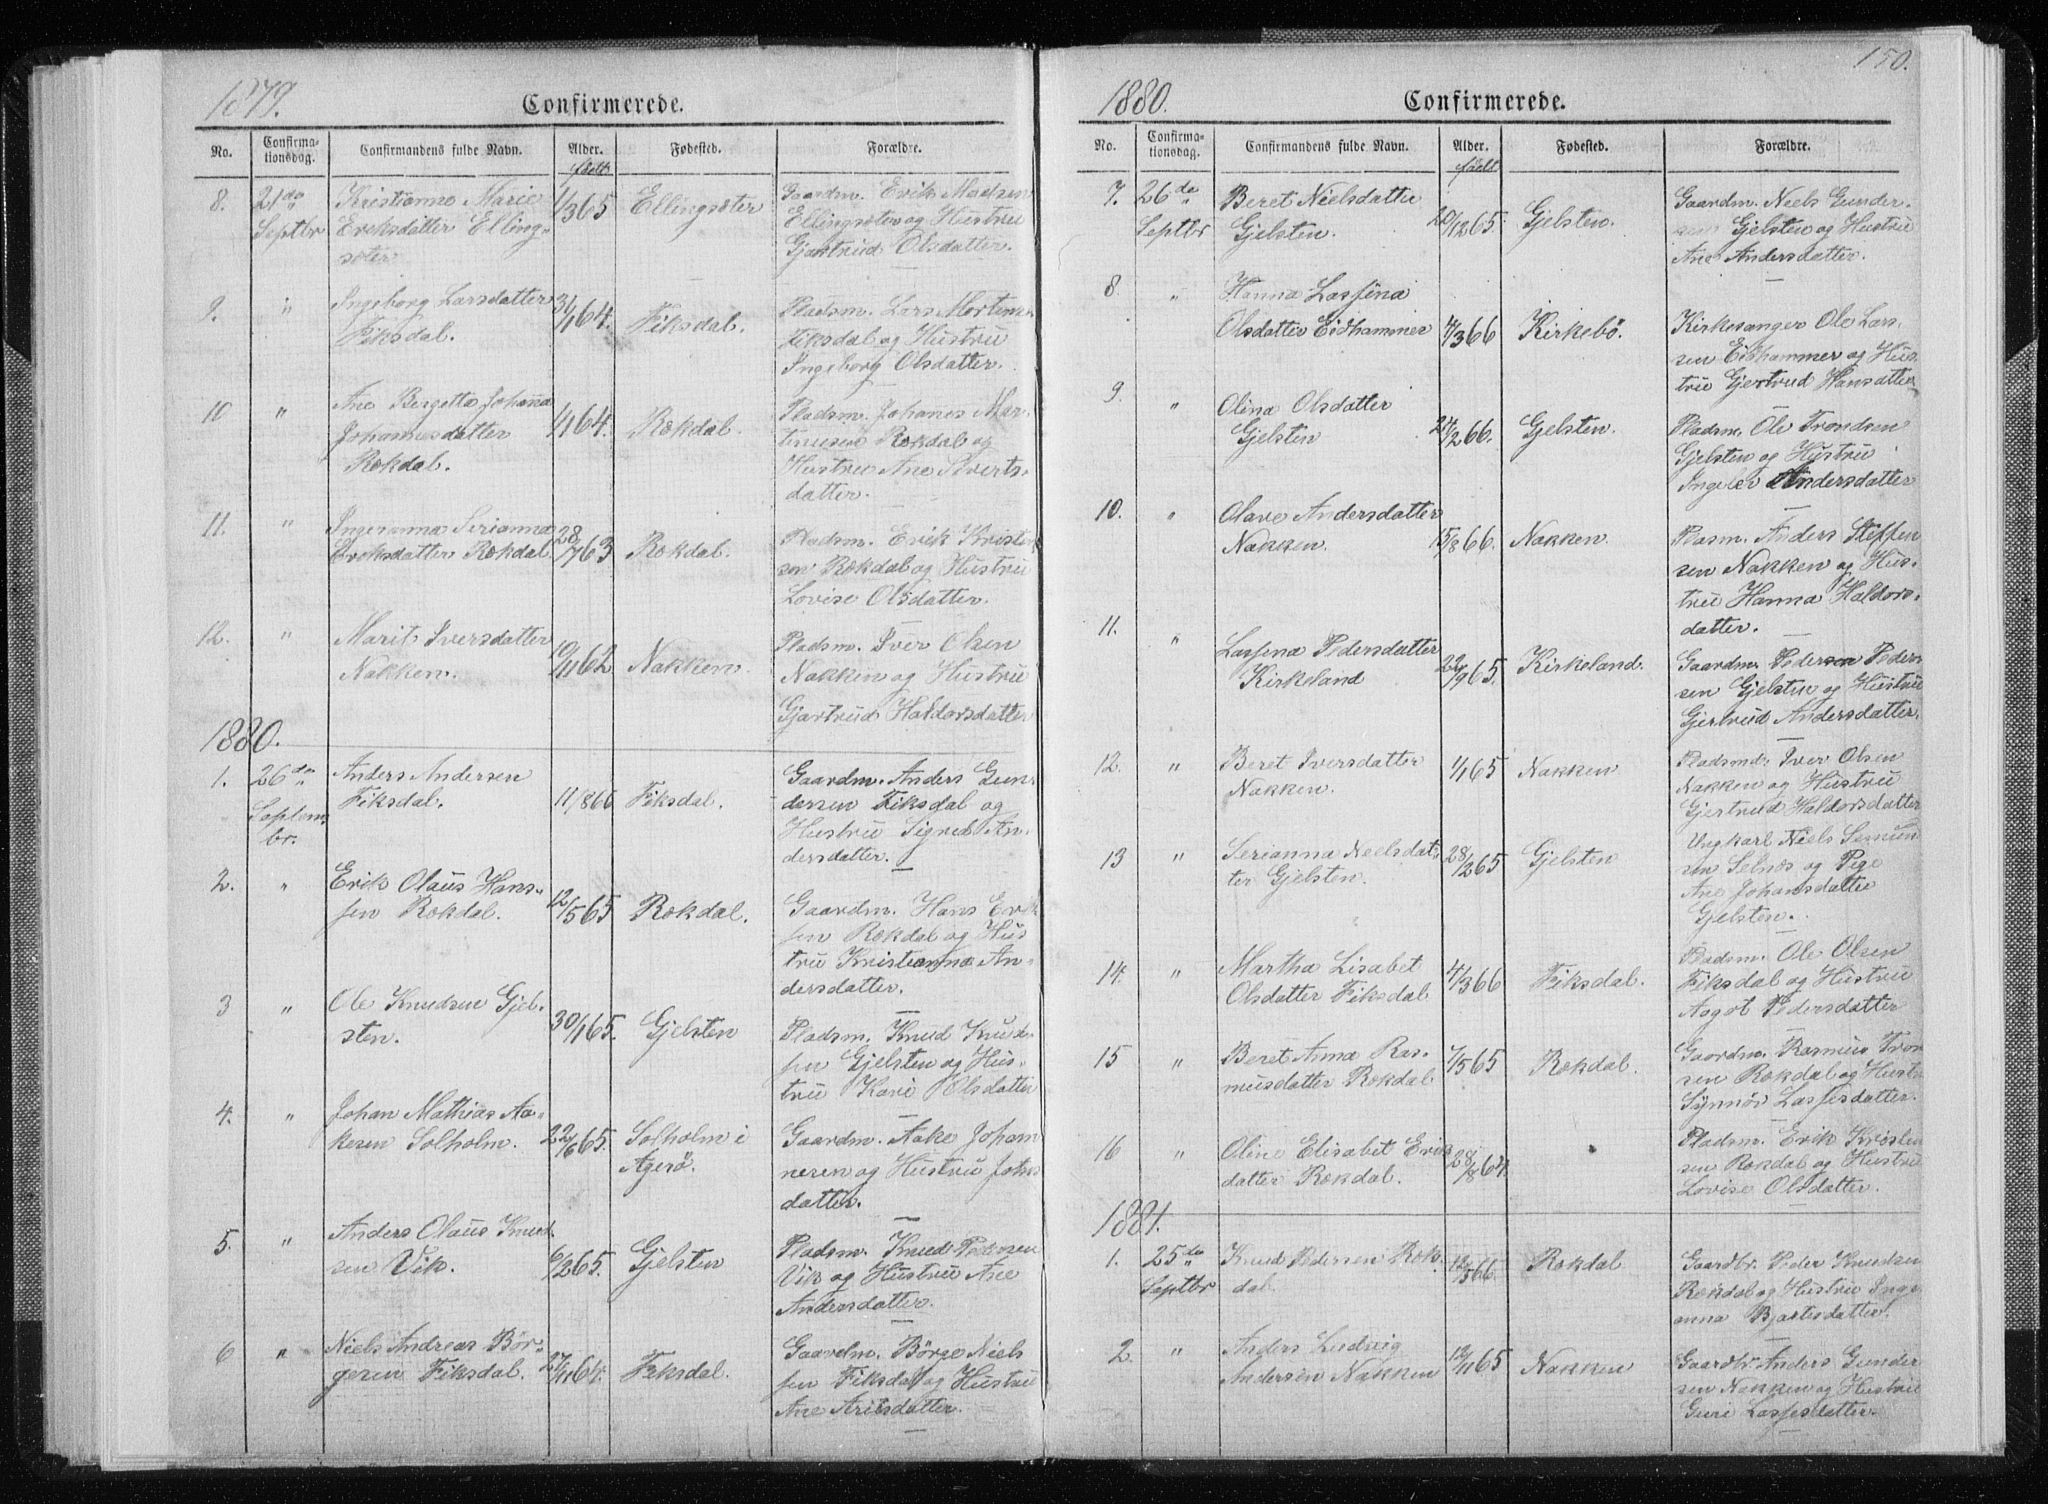 1879.
Confirmerede.
No.
Confirma-
tionsdag.
Confirmandens fulde Navn.
Alder.
født
Fødested.
Forældre.
8.
21de
Septbr
Kristianne Marie
Eriksdatter Elling-
seter
1/365
Ellingseter
Gaardm. Erik Madsen
Ellingseter og Hustru
Gjertrud Olsdatter.
9.
"
Ingeborg Larsdatter
Fiksdal.
31/164.
Fiksdal.
Pladsm. Lars Morten-
Fiksdal og Hustru
Ingeborg Olsdatter.
10
"
Ane Bergetta Johanna
Johannesdatter
Rekdal.
1/164.
Rekdal.
Pladsm. Johannes Mar-
tinusen Rekdal og
Hustru Ane Siverts-
datter.
11.
"
Ingeranna Serianna
Eriksdatter Rekdal
28/763
Rekdal.
Pladsm. Erik Kristen
sen Rekdal og Hustru
Lovise Olsdatter.
12.
"
Marit Iversdatter
Nakken.
10/1162
Nakken.
Pladsm. Iver Olsen
Nakken og Hustru
Gjertrud Haldorsdatter
1880.
1.
26de
Septem-
br.
Anders Andersen
Fiksdal.
11/866
Fiksdal.
Gaardm. Anders Gun-
dersen Fiksdal og
Hustru Sigrid An-
dersdatter.
2.
"
Erik Olaus Hans-
sen Rekdal.
12/565
Rekdal.
Gaardm. Hans Erik
sen Rekdal og Hus
tru Kristianna An-
dersdatter.
3
"
Ole Knudsen Gjel-
sten.
30/165.
Gjelsten
Pladsm. Knud Knud-
sen Gjelsten og Hus-
tru Kari Olsdatter
4.
"
Johan Mathias Aa-
kesen Solholm.
22/665.
Solholm i
Agerö.
Gaardm. Aake Johan
nesen og Hustru Johs
datter.
5.
"
Anders Olaus Knud-
sen Vik.
6/265.
Gjelsten
Pladsm. Knud Pedersen
Vik og Hustru Ane
Andersdatter.
6
"
Niels Andreas Bör-
gesen Fiksdal.
27/1164.
Fiksdal.
Gaardm. Börge Niels
sen Fiksdal og Hustru
Ane Arilsdatter.
150.
1880.
Confirmerede.
No.
Confirma-
tionsdag.
Confirmandens fulde Navn.
Alder.
født
Fødested.
Forældre.
7.
26de
Septbr
Beret Nielsdatter
Gjelsten.
20/1265.
Gjelsten.
Gaardm. Niels Gunder-
sen Gjelsten og Hustru
Ane Andersdatter.
8
"
Hanna Lassina
Olsdatter Eidhammer
4/366
Kirkebö.
Kirkesanger Ole Lars-
sen Eidhammer og Hus-
tru Gjertrud Hansdatter
9
"
Olina Olsdatter
Gjelsten
24/266.
Gjelsten.
Pladsm. Ole Trondsen
Gjelsten og Hustru
Andersdatter
10.
"
Olave Andersdatter
Nakken.
15/866.
Nakken.
Plasm. Anders Steffen
sen Nakken og Hus-
tru Hanna Haldors-
datter.
11.
"
Lassena Pedersdatter
Kirkeland
22/965.
Kirkeland.
Gaardm. Peder Peder
sen Gjelsten og Hustru
Gjertrud Andersdatter.
12.
"
Beret Iversdatter
Nakken.
1/165
Nakken
Pladsmd. Iver Olsen
Nakken og Hustru
Gjertrud Haldorsdatter
13
"
Serianna Neelsdat-
ter Gjelsten.
28/265
Gjelsten
Ungkarl Niels Semun
sen Selnæs og Pige
Ane Johansdatter
Gjelsten.
14.
"
Martha Lisabet
Olsdatter Fiksdal
4/366
Fiksdal.
Pladsm. Ole Olsen
Fiksdal og Hustru
Aagot Pedersdatter
15
"
Beret Anna Ras-
musdatter Rekdal
7/565
Rekdal.
Gaardm. Rasmus Tron
sen Rekdal og Hustru
Synnöv Lassesdatter.
16
"
Oline Elisabet Eriks
datter Rekdal.
28/864.
"
Pladsm. Erik Kristen
sen Rekdal og Hustru
Lovise Olsdatter.
1881.
1.
25de
Septbr
Knud Pedersen Rek-
dal.
12/566.
Rekdal
Gaardbr. Peder Knudsen
Rekdal og Hustru Inge
anna Bjartesdatter.
2.
"
Anders Ludvig
Andersen Nakken
12/1165
Nakken
Gaardbr. Anders Gunder
sen Nakken og Hustru
Guri Lassesdatter.